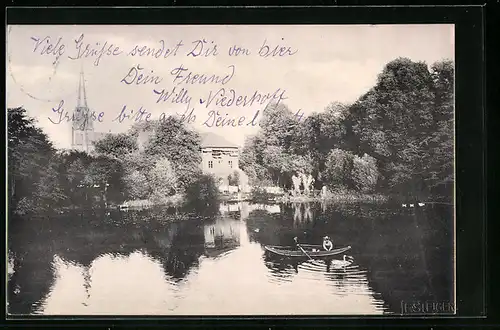 Viele Grüsse sendet Dir von hier
Dein Freund
Willy Niederhoff
Grüsse bitte auch Deine l.